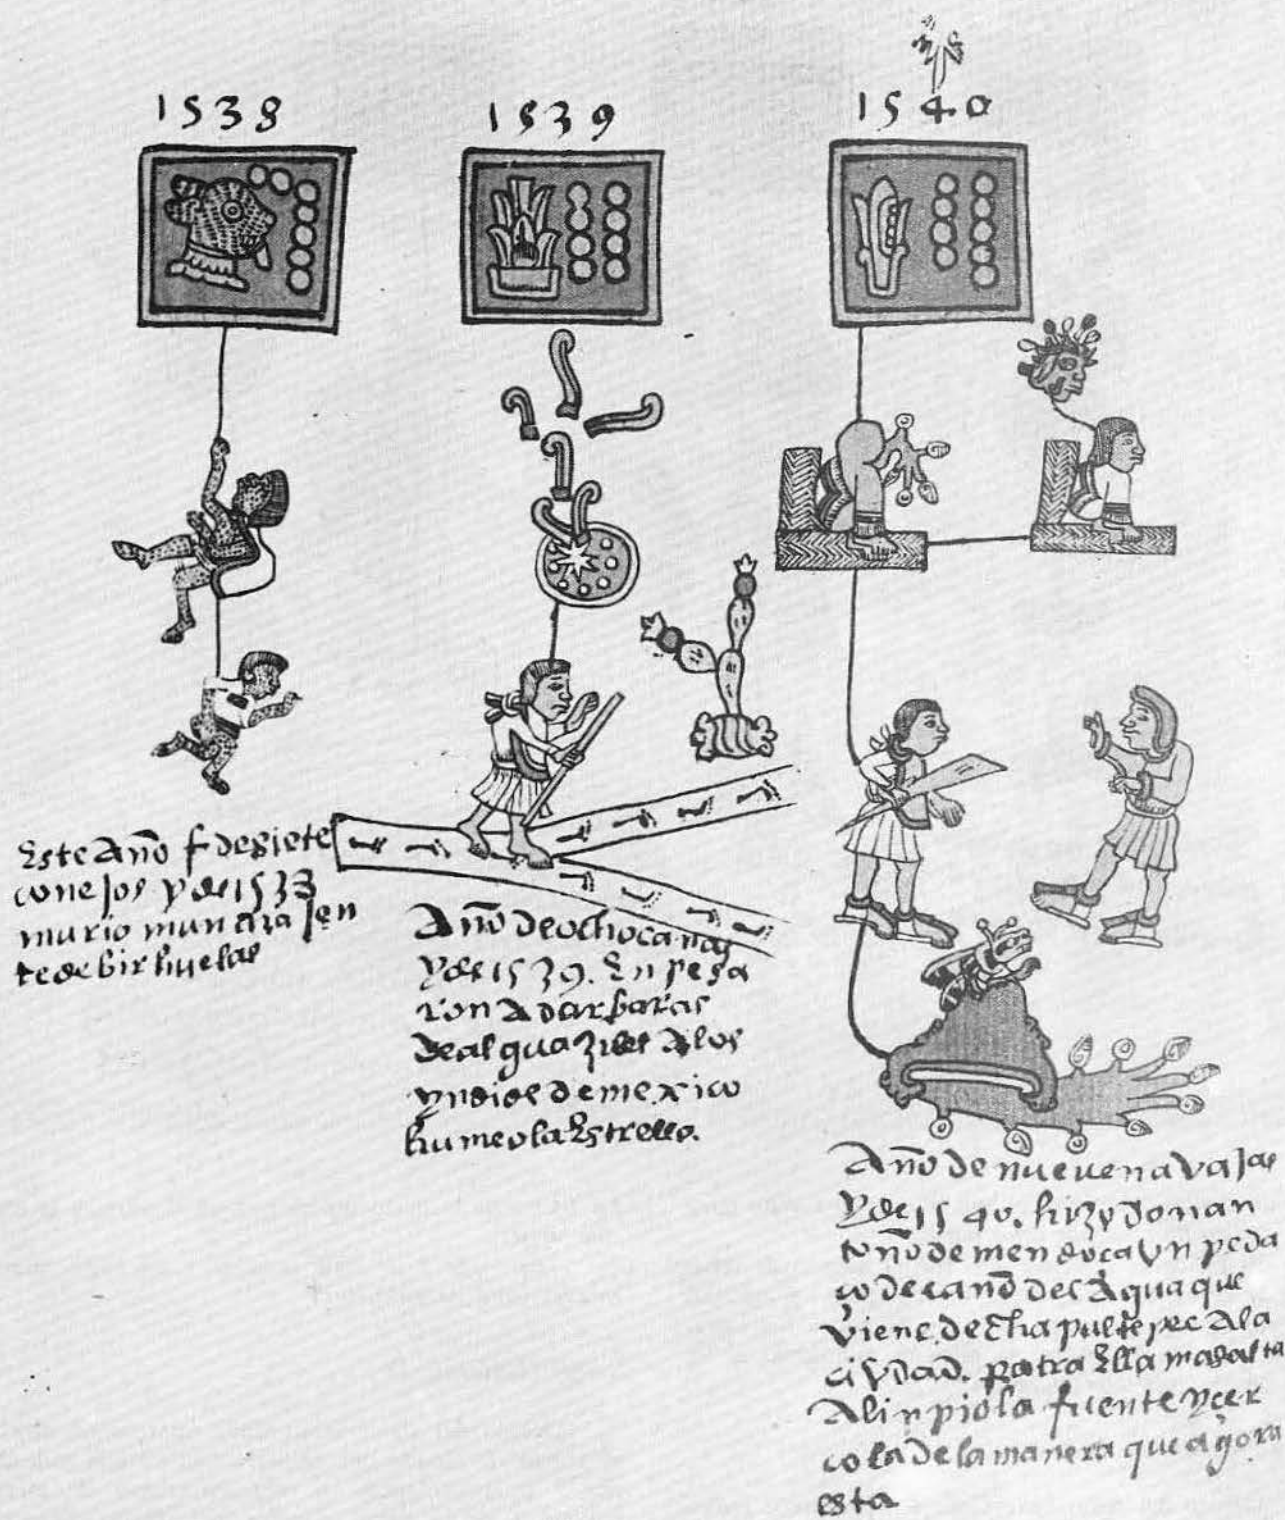 1538
1539
1540
Este Año f de siete
conejos y de 1538
murio muncha jen
te de birhuelas
Año de ocho cañas
y de 1539. Enpesa
ron A dar baras
de alguaziles A los
yndios de mexico
humeo la Estrella.
Año de nueue navajas
y de 1540. hizo don an
toño de mendoca vn peda
co de caño del Agua que
viene de cha pultepec A la
civdad. para traella mas alta
Alinpio la fuente y cer
cola de la manera que agora
esta